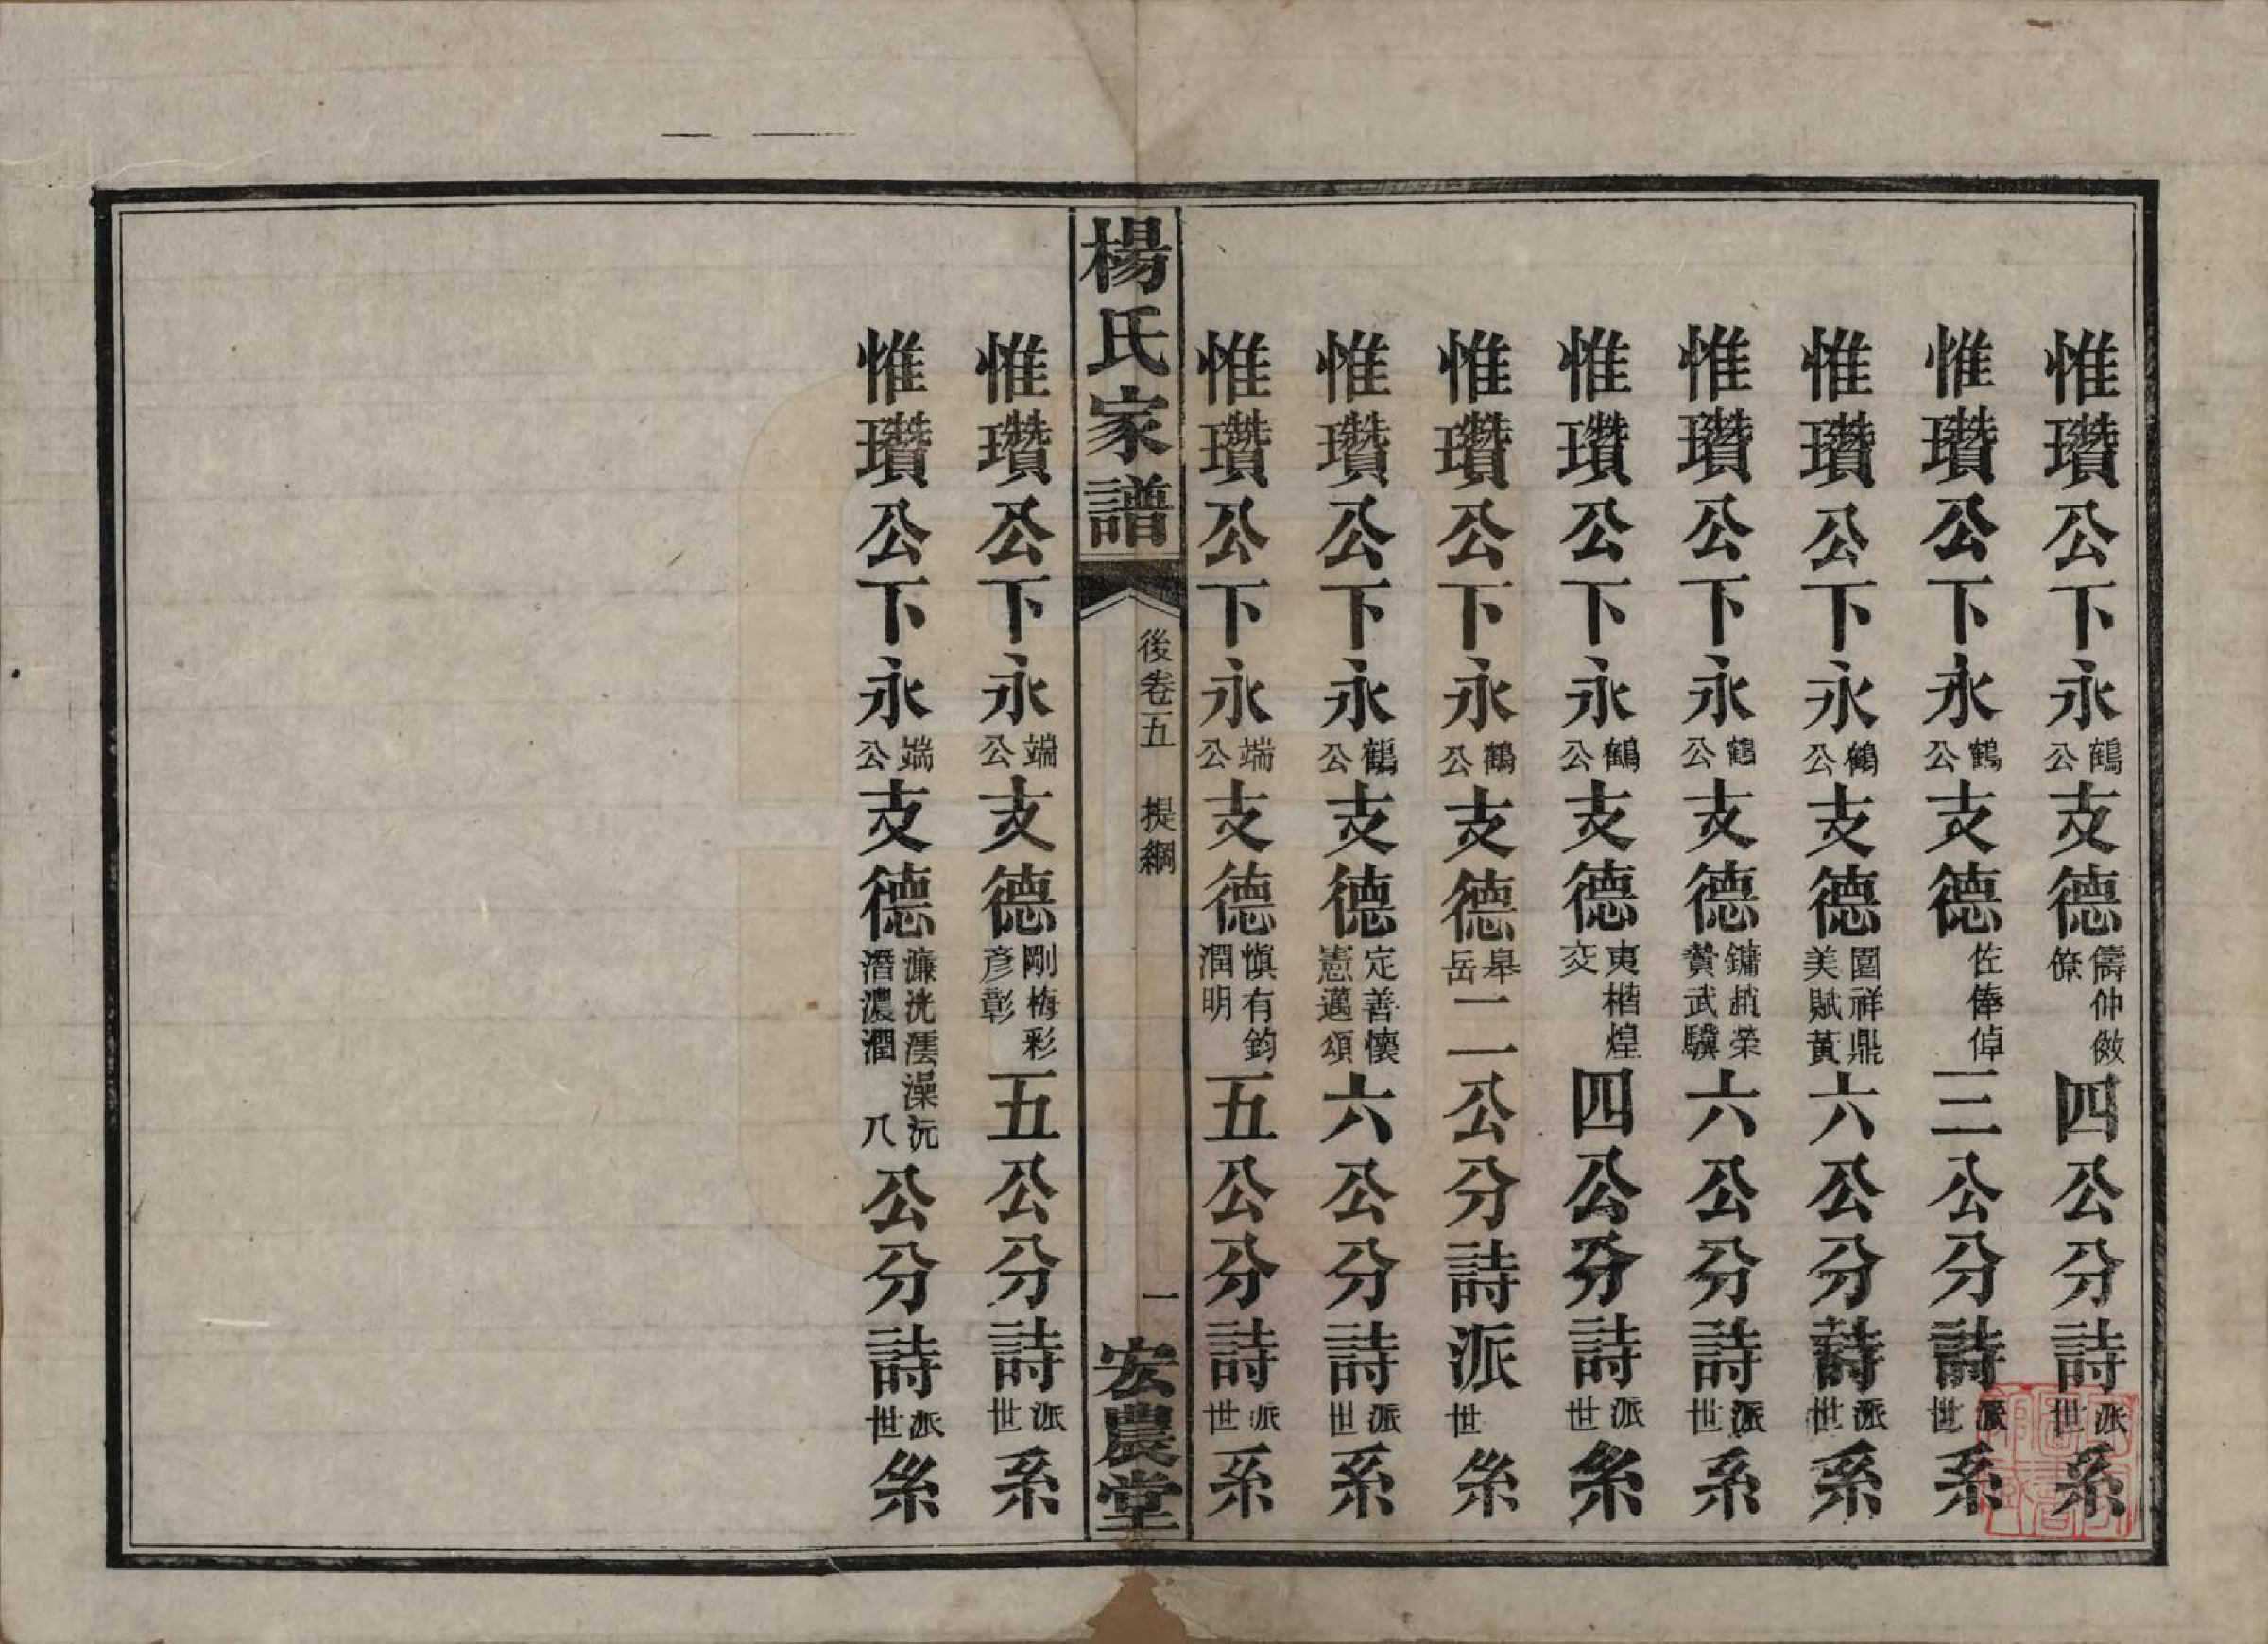 惟瓚公下永鶴公支德儔仲僘僚四公分詩派世系
惟瓚公下永鶴公支德佐俸倬三公分詩派世系
惟瓚公下永鶴公支德圍祥鼎美賦黃六公分詩派世系
惟瓚公下永鶴公支德鏞趙榮贊武驥六公分詩派世系
惟瓚公下永鶴公支德東楷煌交四公分詩派世系
惟瓚公下永鶴公支德皋岳二公分詩派世系
惟瓚公下永鶴公支德定善懷憲邁頌六公分詩派世系
惟瓚公下永端公支德愼有鈞潤明五公分詩派世系
楊氏家譜 後卷五 提綱 一 宏農堂
惟瓚公下永端公支德剛梅彩彥彰五公分詩派世系
惟瓚公下永端公支德濂洸澐澡沅潛濃潤八公分詩派世系